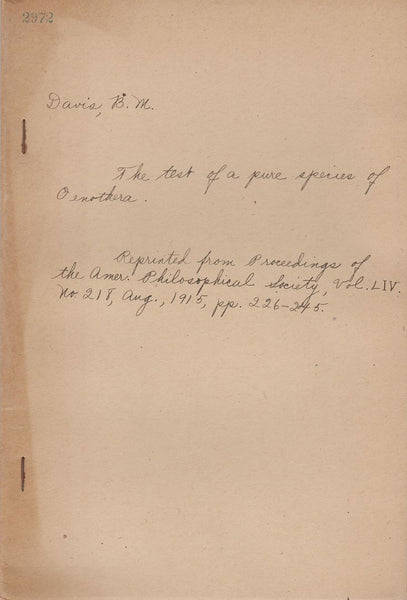 2972
Davis, B. M.
The test of a pure species of
Oenothera.
Reprinted from Proceedings of
the Amer. Philosophical Society, Vol. LIV.
No. 218, Aug., 1915, pp. 226-245.